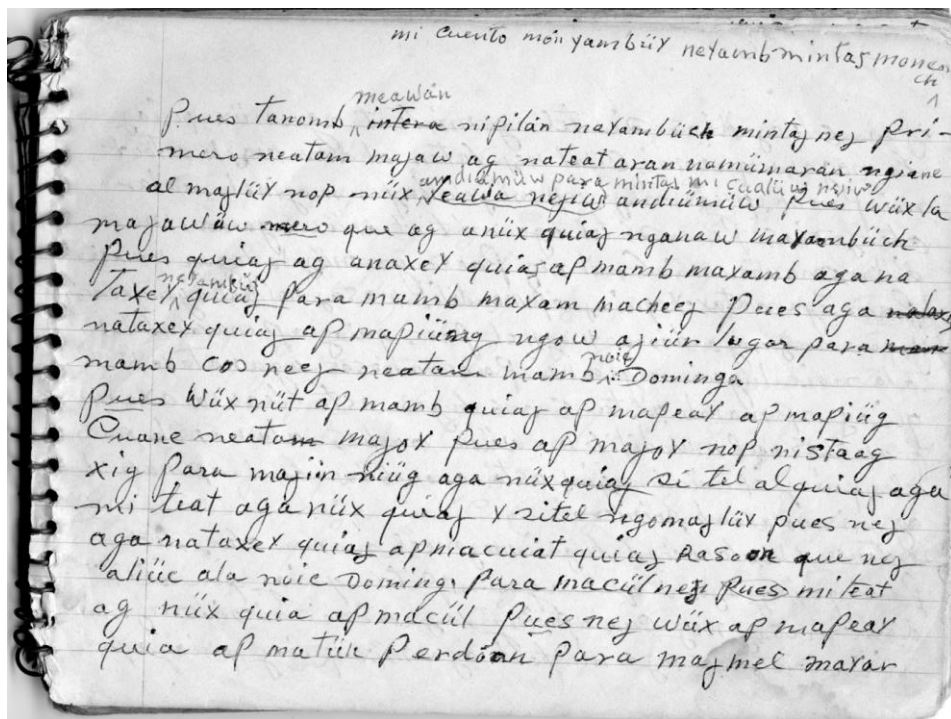 mi cuento món yambüy neyamb mintaj moneon
ch
meawán
Pues tanomb intera nipilán nayambüch mintaj nej Pri-
mero neatam majaw ag nateat aran namümaran ngiane
andiümüw para mintaj mi cualüw nejiw
al majlüy nop nüx leawa nejiw andiümüw Pues wüx la
majawüw mero que ag anüx quiaj nganaw mayambüch
Pues quiaj ag anaxey quiaj ap mamb mayamb aga na
neyambüy
Taxey quiaj Para mamb mayam macheej Pues aga
nataxey quiaj ap mapiüng ngow ajiür lugar para
noic
mamb cos neej neatam mamb Dominga
Pues Wüx nüt ap mamb quiaj ap mapeay ap mapiüg
Cuane neatam majoy Pues ap majoy nop nistaag
xig Para majin niüg aga nüx quiaj si tel al quiaj aga
mi teat aga nüx quiaj y sitel ngomajlüy pues nej
aga nataxey quiaj apmacuiat quiaj Rasoon que nej
aliüc ala noic Doming. Para macül nej Pues mi teat
ag nüx quia ap macül Pues nej wüx ap mapeay
quia ap matün Perdóon Para majmel mayar